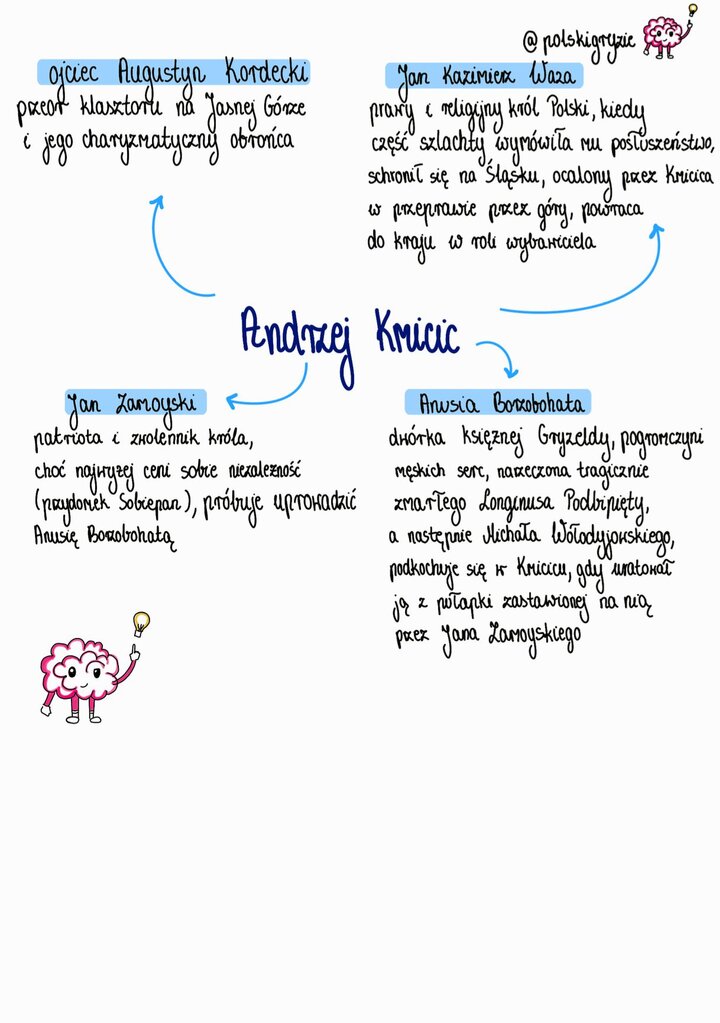 @polskigryzie
ojciec Augustyn Kordecki
przeor klasztoru na Jasnej Górze
i jego charyzmatyczny obrońca
Jan Kazimierz Waza
prawy i religijny król Polski, kiedy
część szlachty wymówiła mu posłuszeństwo,
schronił się na Śląsku, ocalony przez Kmicica
w przeprawie przez góry, powraca
do kraju w roli wybawiciela
Andrzej Kmicic
Jan Zamoyski
patriota i zwolennik króla,
choć najwyżej ceni sobie niezależność
(przydomek Sobiepan), próbuje uprowadzić
Anusię Borzobohatą
Anusia Borzobohata
dwórka księżnej Gryzeldy, pogromczyni
męskich serc, narzeczona tragicznie
zmarłego Longinusa Podbipięty,
a następnie Michała Wołodyjowskiego,
podkochuje się w Kmicicu, gdy uratował
ją z pułapki zastawionej na nią
przez Jana Zamoyskiego